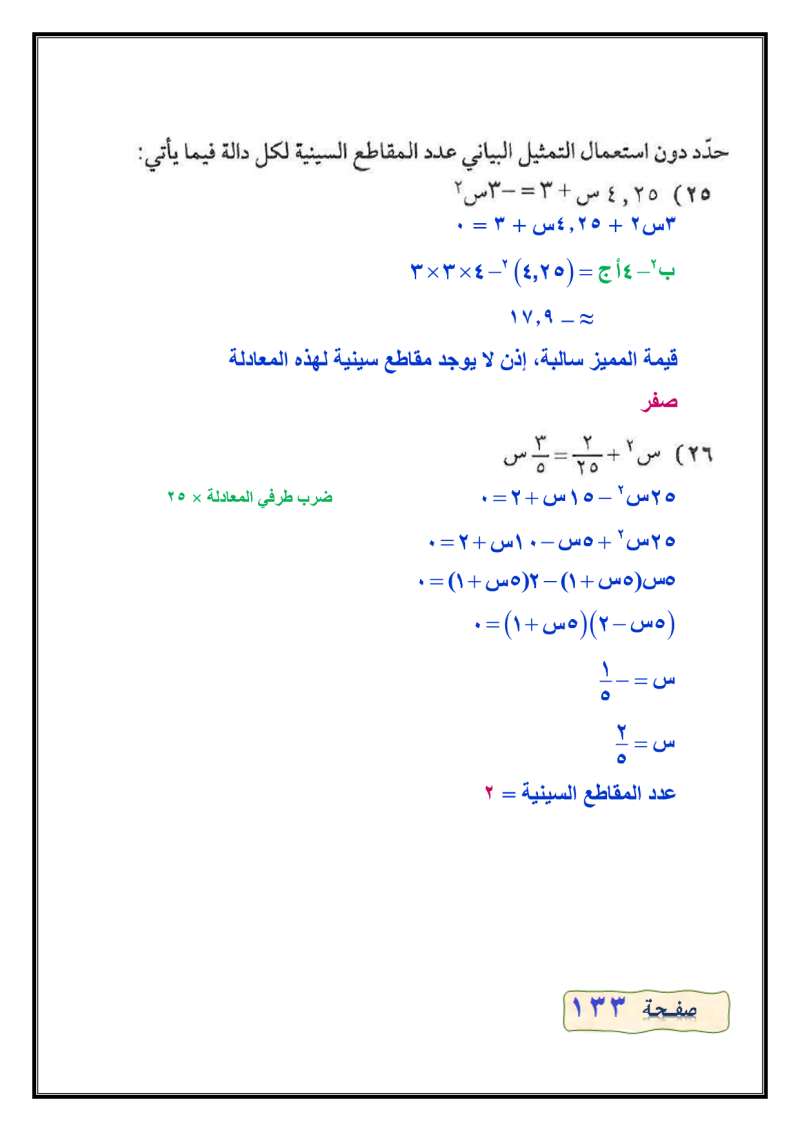 حدّد دون استعمال التمثيل البياني عدد المقاطع السينية لكل دالة فيما يأتي:
٢٥) ٤,٢٥ س + ٣ = −٣س٢
٣س٢ + ٤,٢٥س + ٣ = ٠
ب٢ − ٤أج = (٤,٢٥)٢ − ٤×٣×٣
≈ − ١٧,٩
قيمة المميز سالبة، إذن لا يوجد مقاطع سينية لهذه المعادلة
صفر
٢٦) س٢ + ٢/٢٥ = ٣/٥ س
٢٥س٢ − ١٥س + ٢ = ٠ ضرب طرفي المعادلة × ٢٥
٢٥س٢ + ٥س − ١٠س + ٢ = ٠
٥س(٥س + ١) − ٢(٥س + ١) = ٠
(٥س − ٢)(٥س + ١) = ٠
س = − ١/٥
س = ٢/٥
عدد المقاطع السينية = ٢
صفحة ١٣٣